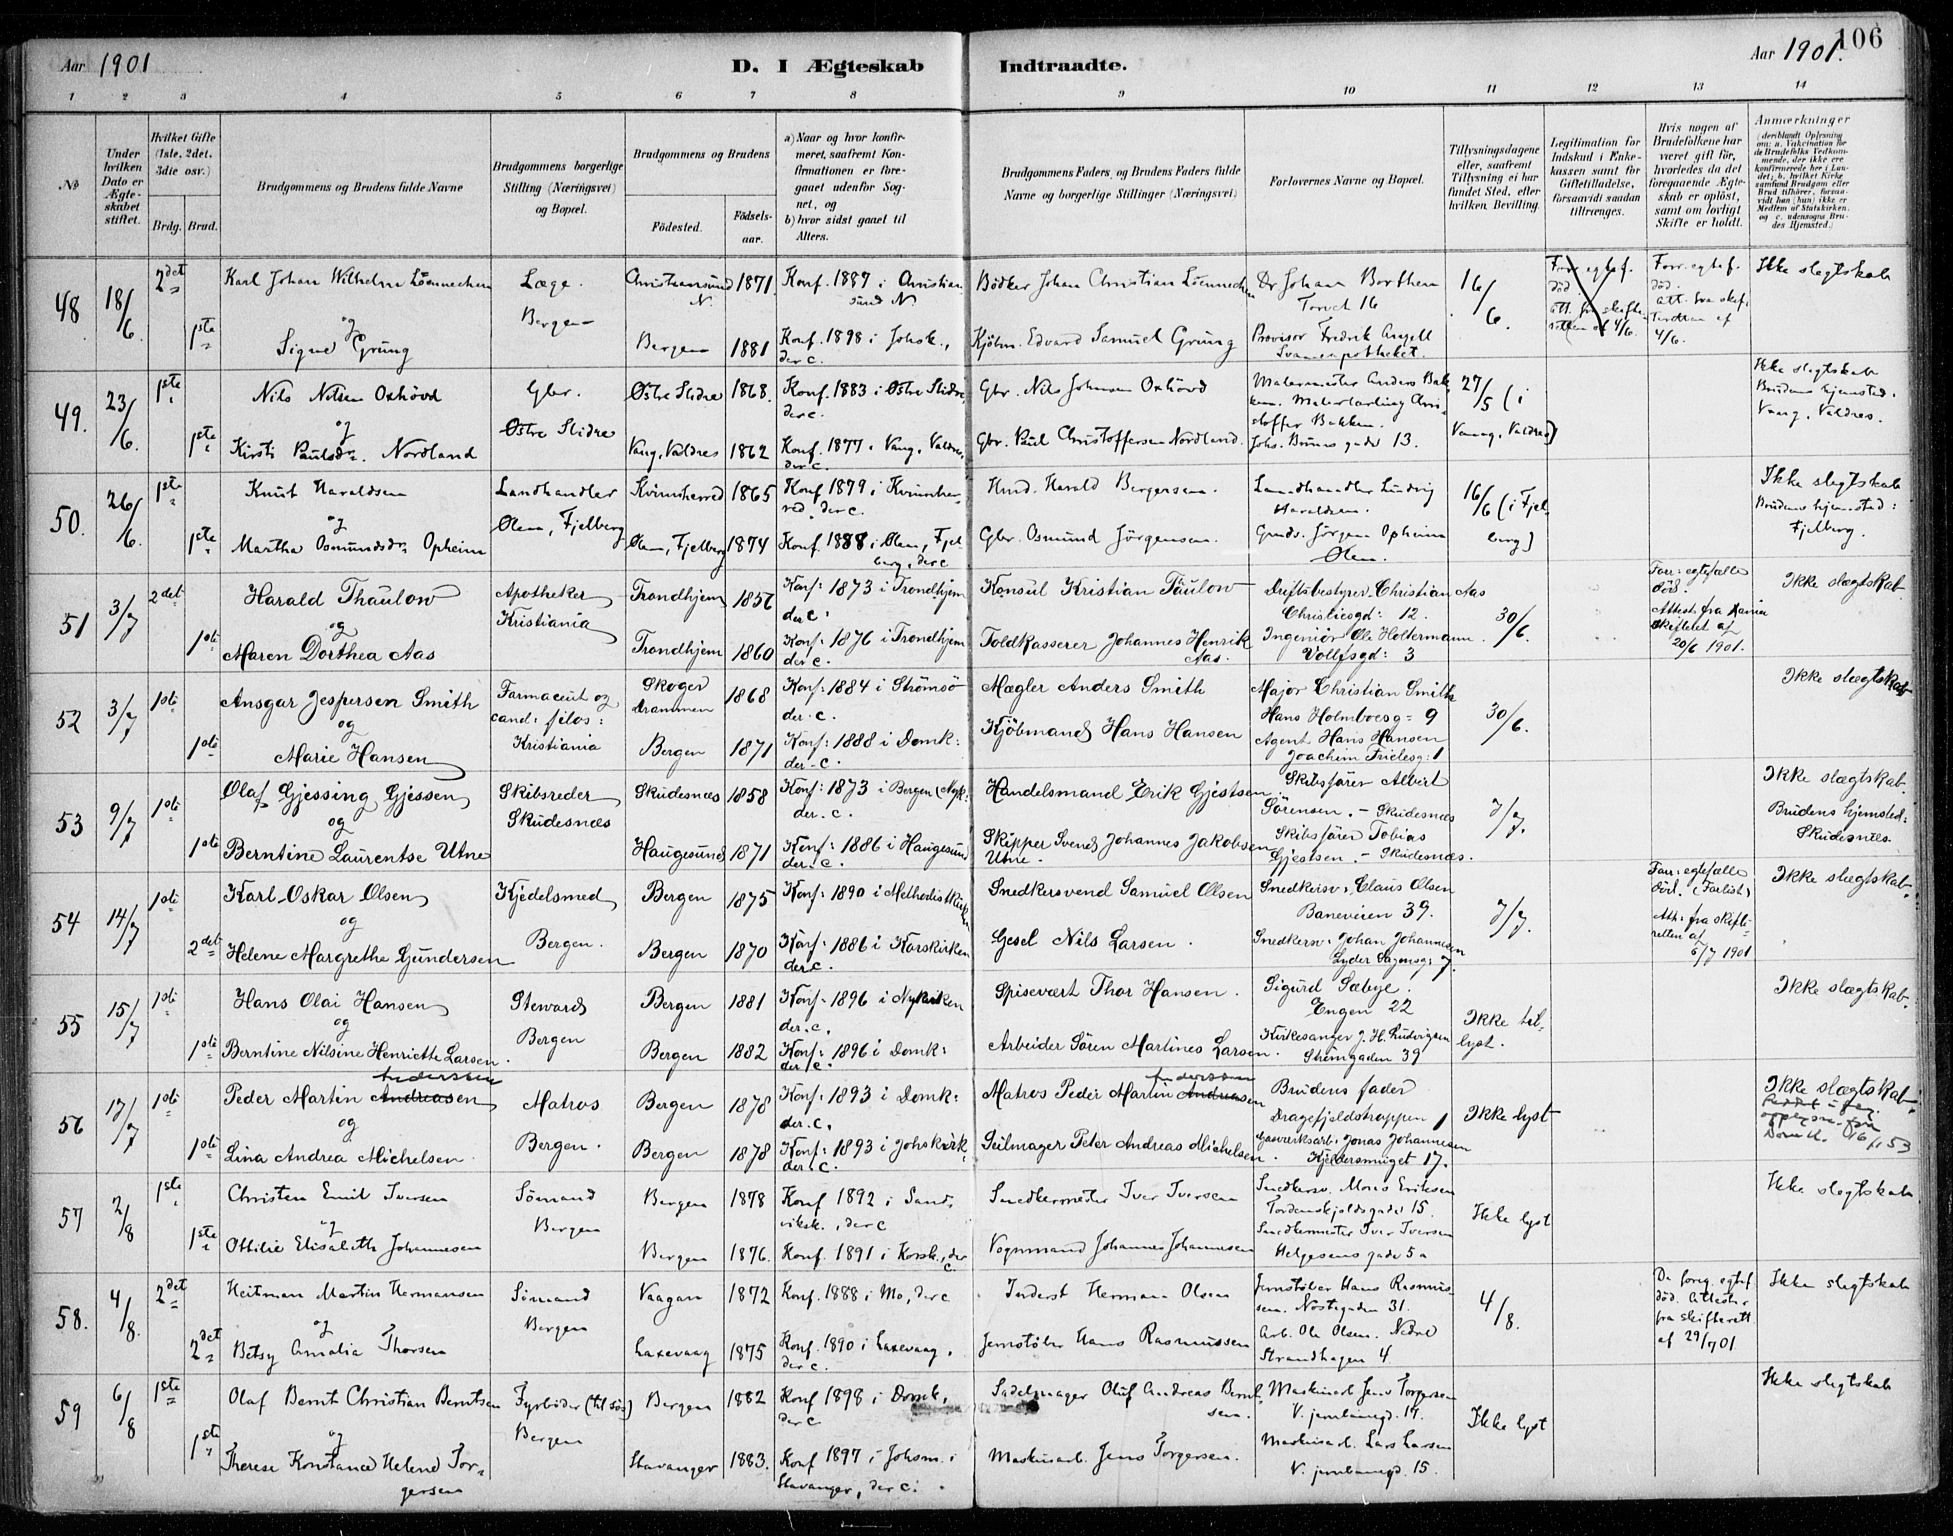 Aar 1901
D. I Ægteskab Indtraadte.
Aar 1901. 106
1 2 3 4 5 6 7 8 9 10 11 12 13 14
No
Under hvilken Dato er Ægteskabet stiftet.
Hvilket Gifte (1ste, 2det, 3die osv.)
Brdg. Brud.
Brudgommens og Brudens fulde Navne
Brudgommens borgerlige Stilling (Næringsvei) og Bopæl.
Brudgommens og Brudens
Födested.
Födsels-aar.
a) Naar og hvor konfirmeret, saafremt Konfirmationen er foregaaet udenfor Sognet, og
b) hvor sidst gaaet til Alters.
Brudgommens Faders, og Brudens Faders fulde Navne og borgerlige Stillinger (Næringsvei)
Forlovernes Navne og Bopæl.
Tillysningsdagene eller, saafremt Tillysning ei har fundet Sted, efter hvilken Bevilling.
Legitimation for Indskud i Enkekassen samt for Giftetilladelse, forsaavidt saadan tiltrænges.
Hvis nogen af Brudefolkene har været gift før, hvorledes da det foregaaende Ægteskab er oplöst, samt om lovligt Skifte er holdt.
Anmærkninger
(deriblandt Oplysning om: a. Vakcination for de Brudefolks Vedkommende, der ikke ere konfirmerede her i Landet, b. hvilket Kirkesamfund Brudgom eller Brud tilhörer, forsaavidt han (hun) ikke er Medlem af Statskirken, og c. udensogns Brudes Hjemsted.)
48 18/6. 2det Karl Johan Wilhelm Löennechen Læge. Christiansund N. 1871 Konf. 1887 i Christiansund N Bödker Johan Christian Löennechen Dr Johan Borthen Torvet 16 16/6. Forr. egtef. död. att. fra skifteretten af 4/6. Ikke slegtskab
og Bergen
1ste Signe Grung Bergen 1881 Konf. 1898 i Johsk., der c. Kjöbm. Edvard Samuel Grung Provisor Fredrik Angell Svaneapotheket.
49. 23/6. 1ste Nils Nilsen Oxhövd Gbr. Østre Slidre 1868. Konf. 1883 i Østre Slidre, der c. Gbr. Nils Johnsen Oxhövd Malermester Anders Bakken. Malerlærling Christoffer Bakken. 27/5 (i Vang, Valdres) Ikke slegtskab Brudens hjemsted: Vang, Valdres.
og Østre Slidre
1ste Kirsti Paulsdr. Nordland Vang, Valdres 1862 Konf. 1877 i Vang, Valdres, der c. Gbr. Paul Christoffersen Nordland. Johs. Bruns gade 13.
50. 26/6. 1ste Knut Haraldsen Landhandler Kvinnherred 1865 Konf. 1879 i Kvinnherred, der c. Hmd. Harald Bergersen. Landhandler Ludvig Haraldsen. 16/6 (i Fjelberg) Ikke slegtskab Brudens hjemsted: Fjelberg.
og Ølen, Fjelberg
1ste Martha Osmundsdr. Opheim Ølen, Fjelberg 1874 Konf. 1888 i Ølen, Fjelberg, der c Gbr. Osmund Jörgensen. Gmds. Jörgen Opheim Ølen.
51 3/7 2det Harald Thaulow Apotheker Trondhjem 1856 Konf: 1873 i Trondhjem der c: Konsul Kristian Taulow Driftsbestyrer Christian Aas Christiesgd: 12. 30/6. Forr: egtefælle död. Attest. fra Hamar skifteret af 20/6 1901. Ikke slægtskab
og Kristiania
1ste Maren Dorthea Aas Trondhjem 1860 Konf: 1876 i Trondhjem der c. Toldkasserer Johannes Henrik Aas. Ingeniör Ole Holtermann. Vollfsgd: 3
52 3/7 1ste Ansgar Jespersen Smith Farmaceut og cand: filos: Skoger Drammen 1868 Konf: 1884 i Strømsö der c. Mægler Anders Smith Major Christian Smith Hans Holmboesg: 9 30/6. Ikke slægtskab
og Kristiania
1ste Marie Hansen Bergen 1871 Konf: 1888 i Domk: der c. Kjöbmand Hans Hansen Agent Hans Hansen Joachim Frielesg: 1
53 9/7 1ste Olaf Gjessing Gjessen Skibsreder Skudesnæs 1858 Konf: 1873 i Bergen (Nyk: der c. Handelsmand Erik Gjestsen. Skibsförer Albert Sörensen. - Skudesnæs 7/7. Ikke slægtskab. Brudens hjemsted: Skudesnæs.
og Skudesnæs
1ste Berntine Laurentse Utne Haugesund 1871 Konf: 1886 i Haugesund der c. Skipper Svend Johannes Jakobsen Utne. Skibsförer Tobias Gjestsen. - Skudesnæs.
54 14/7 1ste Karl Oskar Olsen Kjedelsmed Bergen 1875 Konf: 1890 i Methodistkirken Snedkersvend Samuel Olsen Snedkersv: Claus Olsen Baneveien 39. 7/7. Forr: egtefælle död. (Forlist) Att: fra skifteretten af 6/7 1901 Ikke slægtskab.
og Bergen.
2det Helene Margrethe Gundersen Bergen 1870 Konf: 1886 i Korskirken der c. Gesel Nils Larsen. Snedkersv: Johan Johannesen Lyder Sagensg: 7.
55 15/7 1ste Hans Olai Hansen Steward Bergen 1881 Konf: 1896 i Nykirken der c. Spisevært Thor Hansen. Sigurd Sæbye. Engen 22 Ikke tillyst. Ikke slægtskab.
og Bergen
1ste Berntine Nilsine Henriette Larsen. Bergen 1882 Konf: 1896 i Domk: der c. Arbeider Sören Martines Larsen. Kirkesanger J. H. Ludvigsen Strömgaden 39
56 17/7 1ste Peder Martin Andreasen Anderssen Matros Bergen 1878 Konf: 1893 i Domk: der c. Matros Peder Martin Andreasen Anderssen Brudens fader Dragefjeldstrappen 1 Ikke lyst Ikke slægtskab. Rettet ifør. opplysn. fra Domk. 16/1 53
og Bergen.
1ste Lina Andrea Michelsen. Bergen 1878 Konf: 1893 i Johskirk: der c. Seilmager Peter Andreas Michelsen. Gasverksarb: Jonas Johannesen Kjeldersmuget 17.
57 2/8 1ste Christen Emil Iversen Sömand Bergen 1878 Konf 1892 i Sandviksk., der c Snedkermester Iver Iversen Snedkersv. Mons Eriksen Tordenskjoldsgade 15. Ikke lyst Ikke slegtskab
og Bergen
1ste Ottilie Elisabeth Johannesen Bergen 1876. Konf. 1891 i Korsk., der c. Vognmand Johannes Johannesen Snedkermester Iver Iversen Helgesens gade 5a
58. 4/8. 2det Heitman Martin Hermansen Sömand Vaagan 1872 Konf. 1888 i Mo, der c Inderst Herman Olsen Jernstöber Hans Rasmussen. Nöstegaden 31. 4/8. De foreg. egtef. död. Attester fra skifterett af 29/7 01. Ikke slegtskab
og Bergen
2det Betsy Amalia Thorsen Laxevaag 1875 Konf. 1890 i Laxevaag, der c. Jernstöber Hans Rasmussen Arb. Ole Olsen. Nedre Strandhagen 4
59 6/8 1ste Olaf Bernt Christian Berntsen Fyrböder (til söes) Bergen 1882 Konf 1898 i Domk, der c Sadelmager Oluf Andreas Berntsen. Maskinarb. Jens Torgersen V. jernbanegd. 17. Ikke lyst Ikke slegtskab
og Bergen
1ste Therese Konstance Helene Torgersen Stavanger 1883. Konf 1897 i Johsm. i Stavanger, der c. Maskinarb. Jens Torgersen. Maskinarb. Lars Larsen V. jernbanegd. 15.